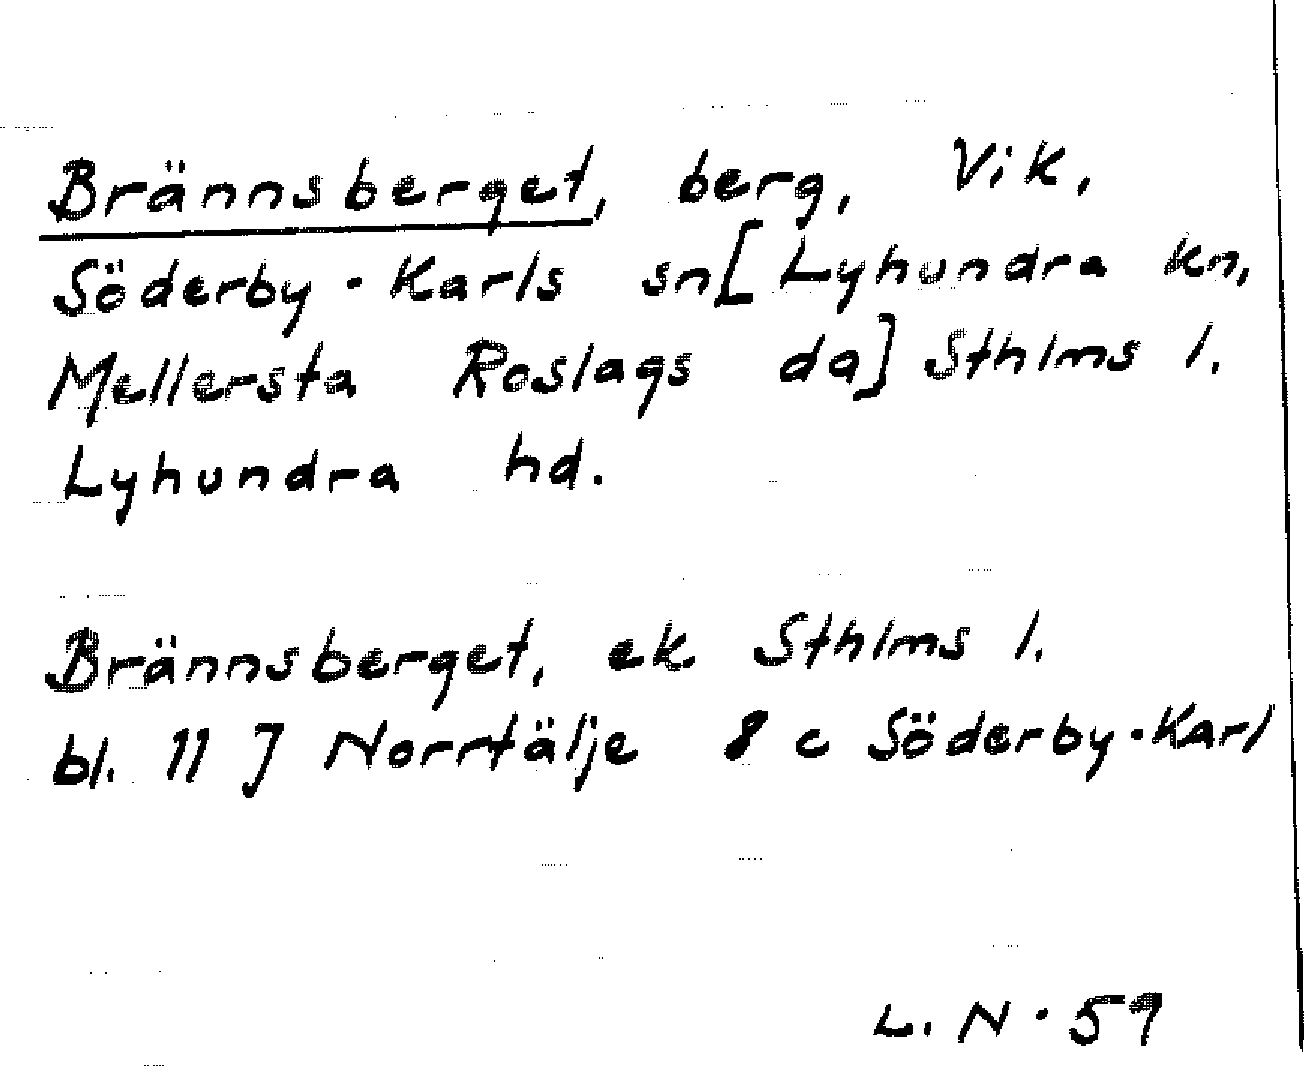 Brännsberget, berg, Vik,
Söderby-Karls sn [Lyhundra kn,
Mellersta Roslags da] Sthlms l.
Lyhundra hd.
Brännsberget, ek Sthlms l.
bl. 11 J Norrtälje 8 c Söderby-Karl
L. N. 59